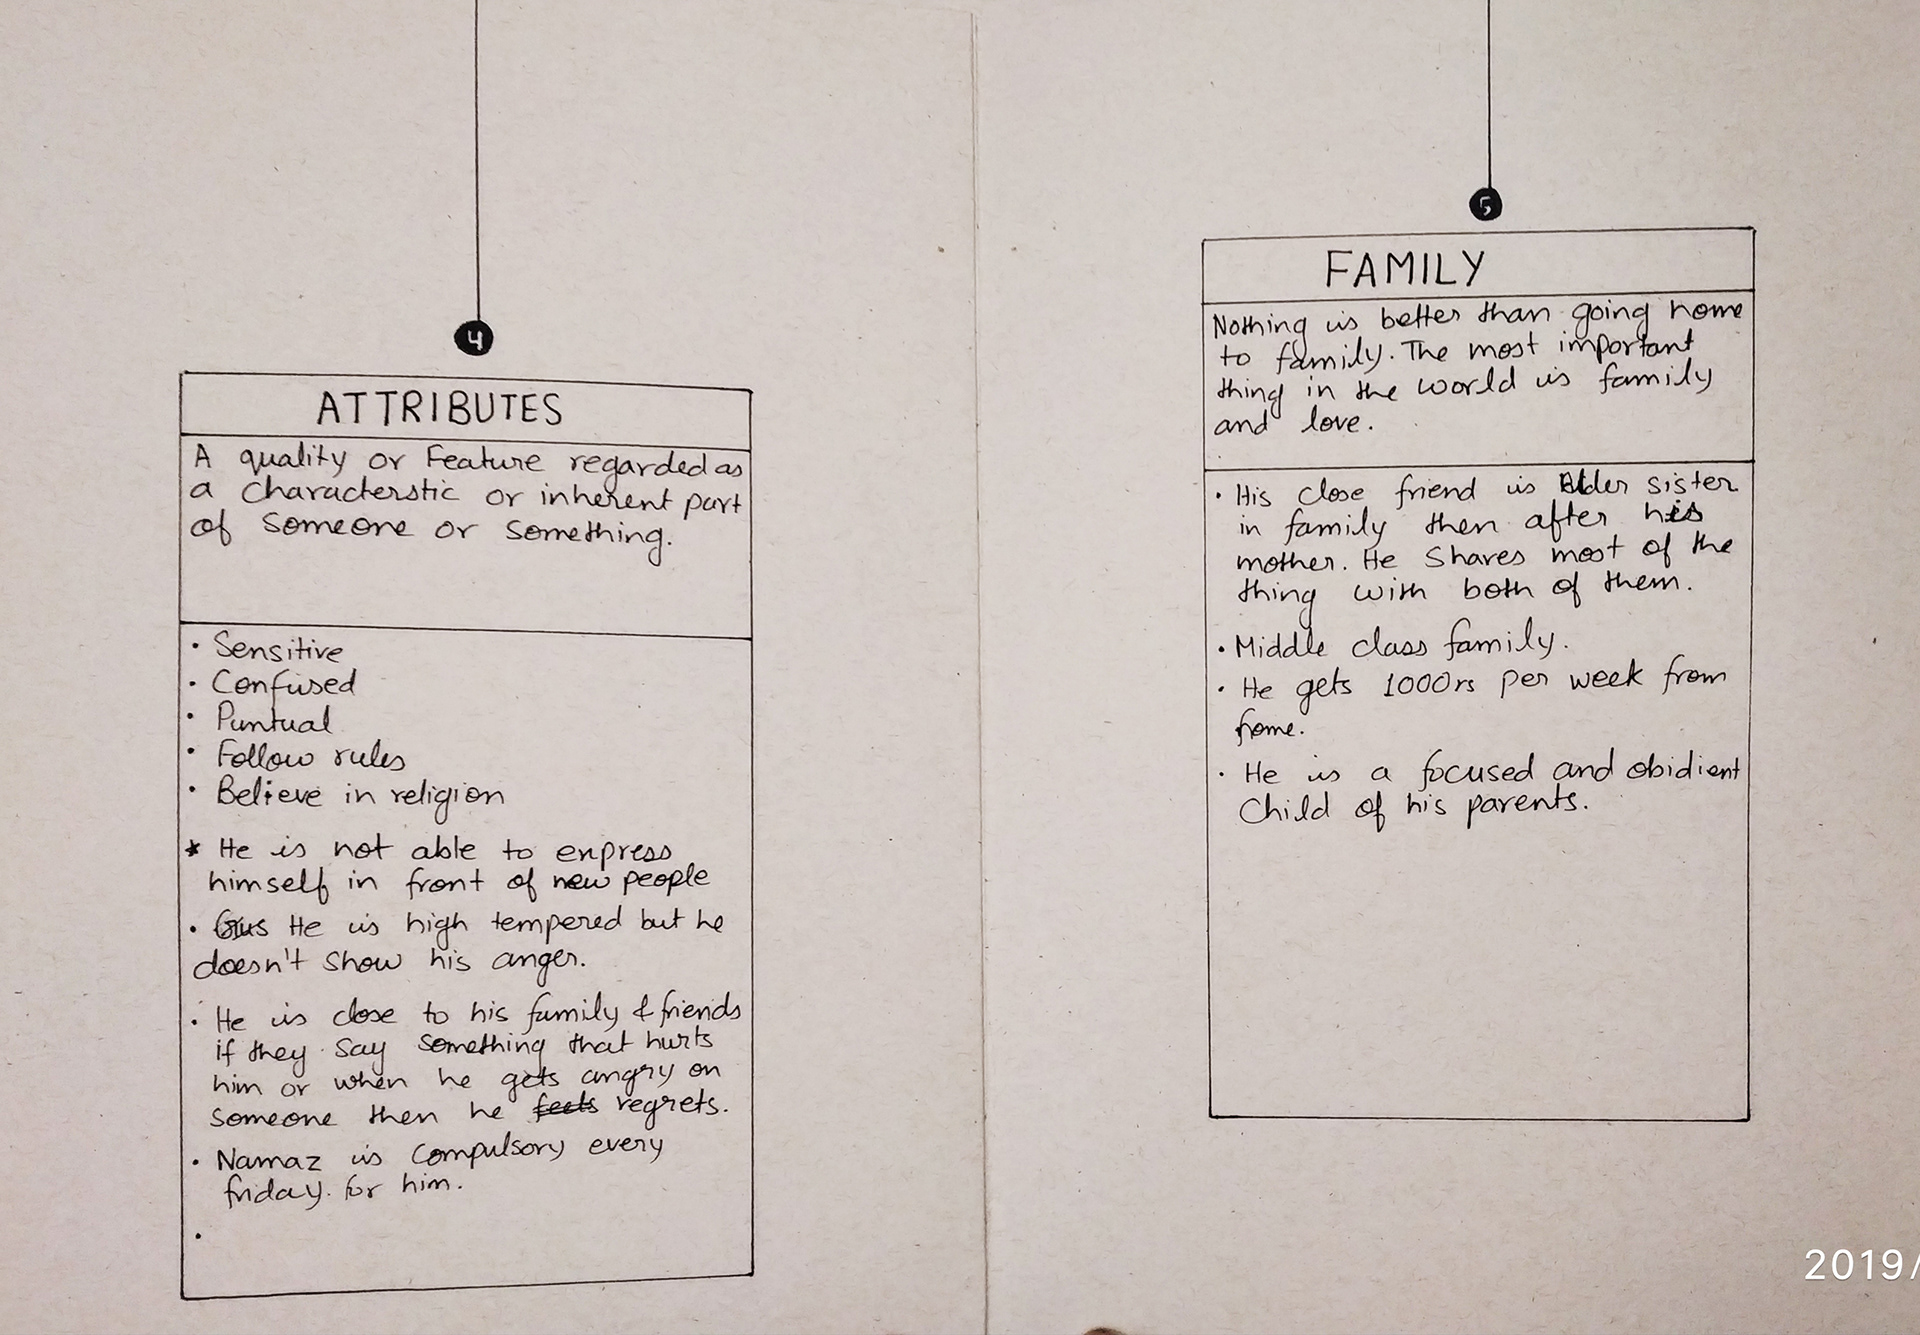 4
ATTRIBUTES
A quality or Feature regarded as
a characterstic or inherent part
of someone or something.
• Sensitive
• Confused
• Puntual
• Follow rules
• Believe in religion
* He is not able to enpress
himself in front of new people
• He is high tempered but he
doesn't show his anger.
• He is close to his family & friends
if they say something that hurts
him or when he gets angry on
someone then he feels regrets.
• Namaz is compulsory every
friday. for him.
•
5
FAMILY
Nothing is better than going home
to family. The most important
thing in the world is family
and love.
• His close friend is Elder sister
in family then after his
mother. He shares most of the
thing with both of them.
• Middle class family.
• He gets 1000rs per week from
home.
• He is a focused and obidient
Child of his parents.
2019/